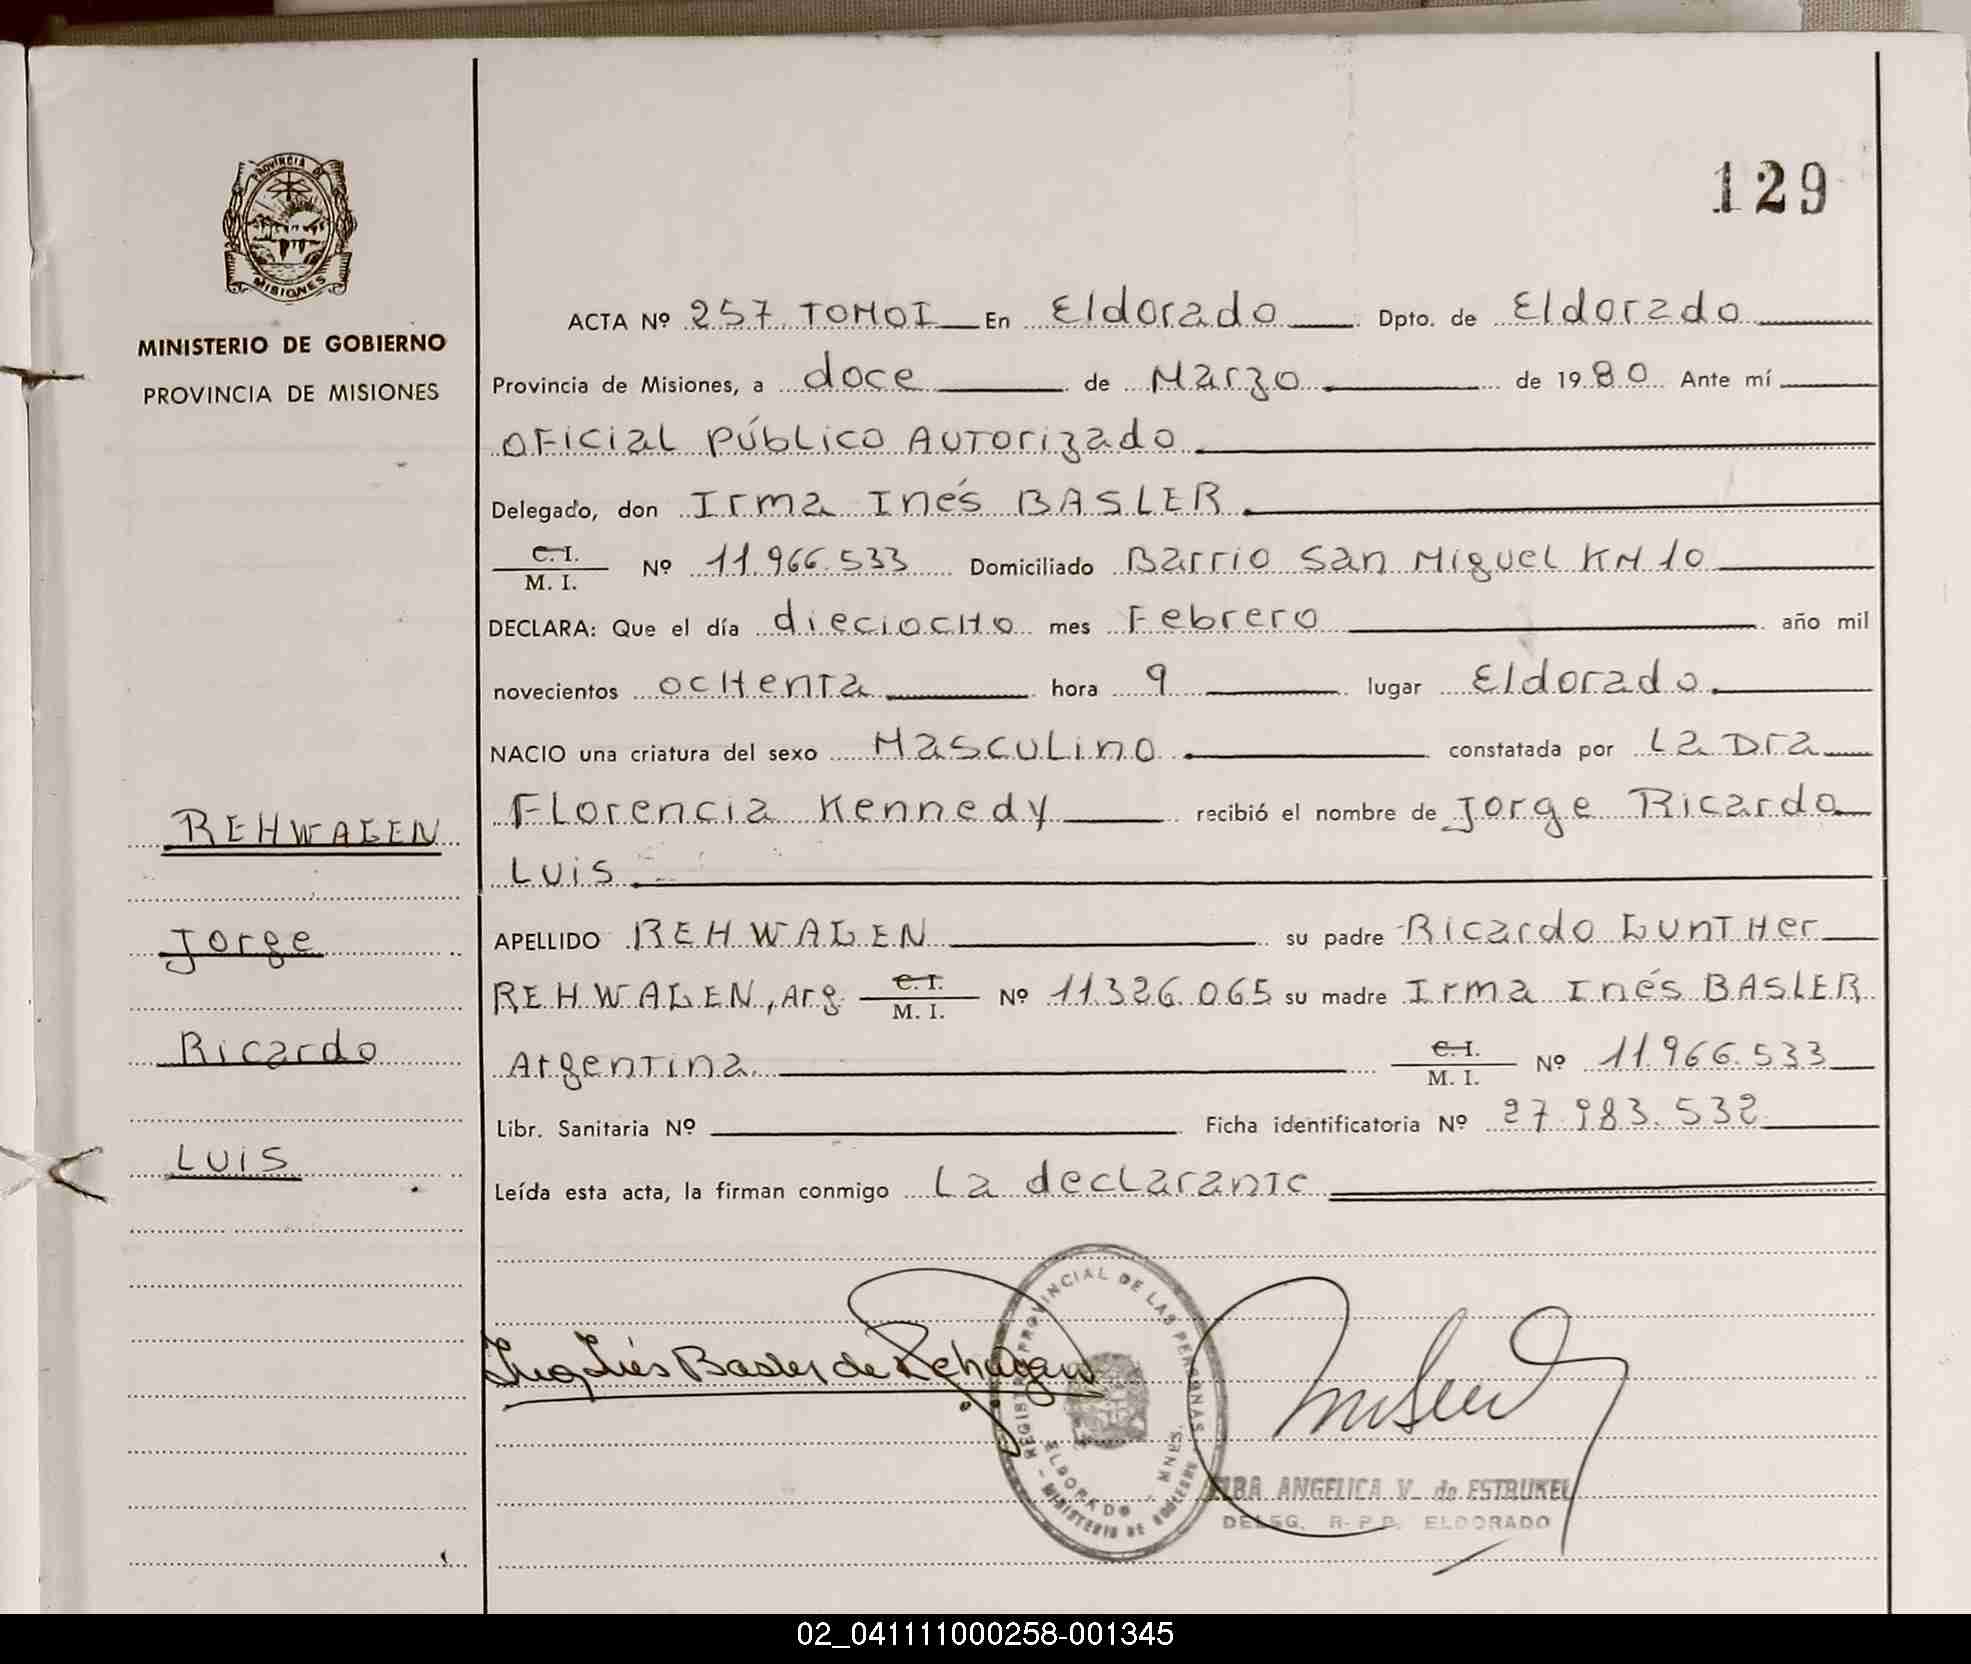 129
PROVINCIA DE
MISIONES
MINISTERIO DE GOBIERNO
PROVINCIA DE MISIONES
ACTA Nº 257 TOMO I En Eldorado Dpto. de Eldorado
Provincia de Misiones, a doce de Marzo de 1980 Ante mí
Oficial Público Autorizado
Delegado, don Irma Inés BASLER
C. I.
M. I. Nº 11.966.533 Domiciliado Barrio San Miguel KM 10
DECLARA: Que el día dieciocho mes Febrero año mil
novecientos ochenta hora 9 lugar Eldorado
NACIO una criatura del sexo Masculino constatada por La Dra
Florencia Kennedy recibió el nombre de Jorge Ricardo
Luis
APELLIDO REHWAGEN su padre Ricardo Gunther
REHWAGEN, Arg C. I. M. I. Nº 11.326.065 su madre Irma Inés BASLER
Argentina C. I. M. I. Nº 11.966.533
Libr. Sanitaria Nº Ficha identificatoria Nº 27.983.532
Leída esta acta, la firman conmigo La declarante
REHWAGEN
Jorge
Ricardo
Luis
Inés Basler de Rehwagen
REGISTRO PROVINCIAL DE LAS PERSONAS
ELDORADO - MNES.
- MINISTERIO DE GOBIERNO
ANGELICA V. de ESTRUKEL
DELEG. R. P. P. ELDORADO
02_041111000258-001345